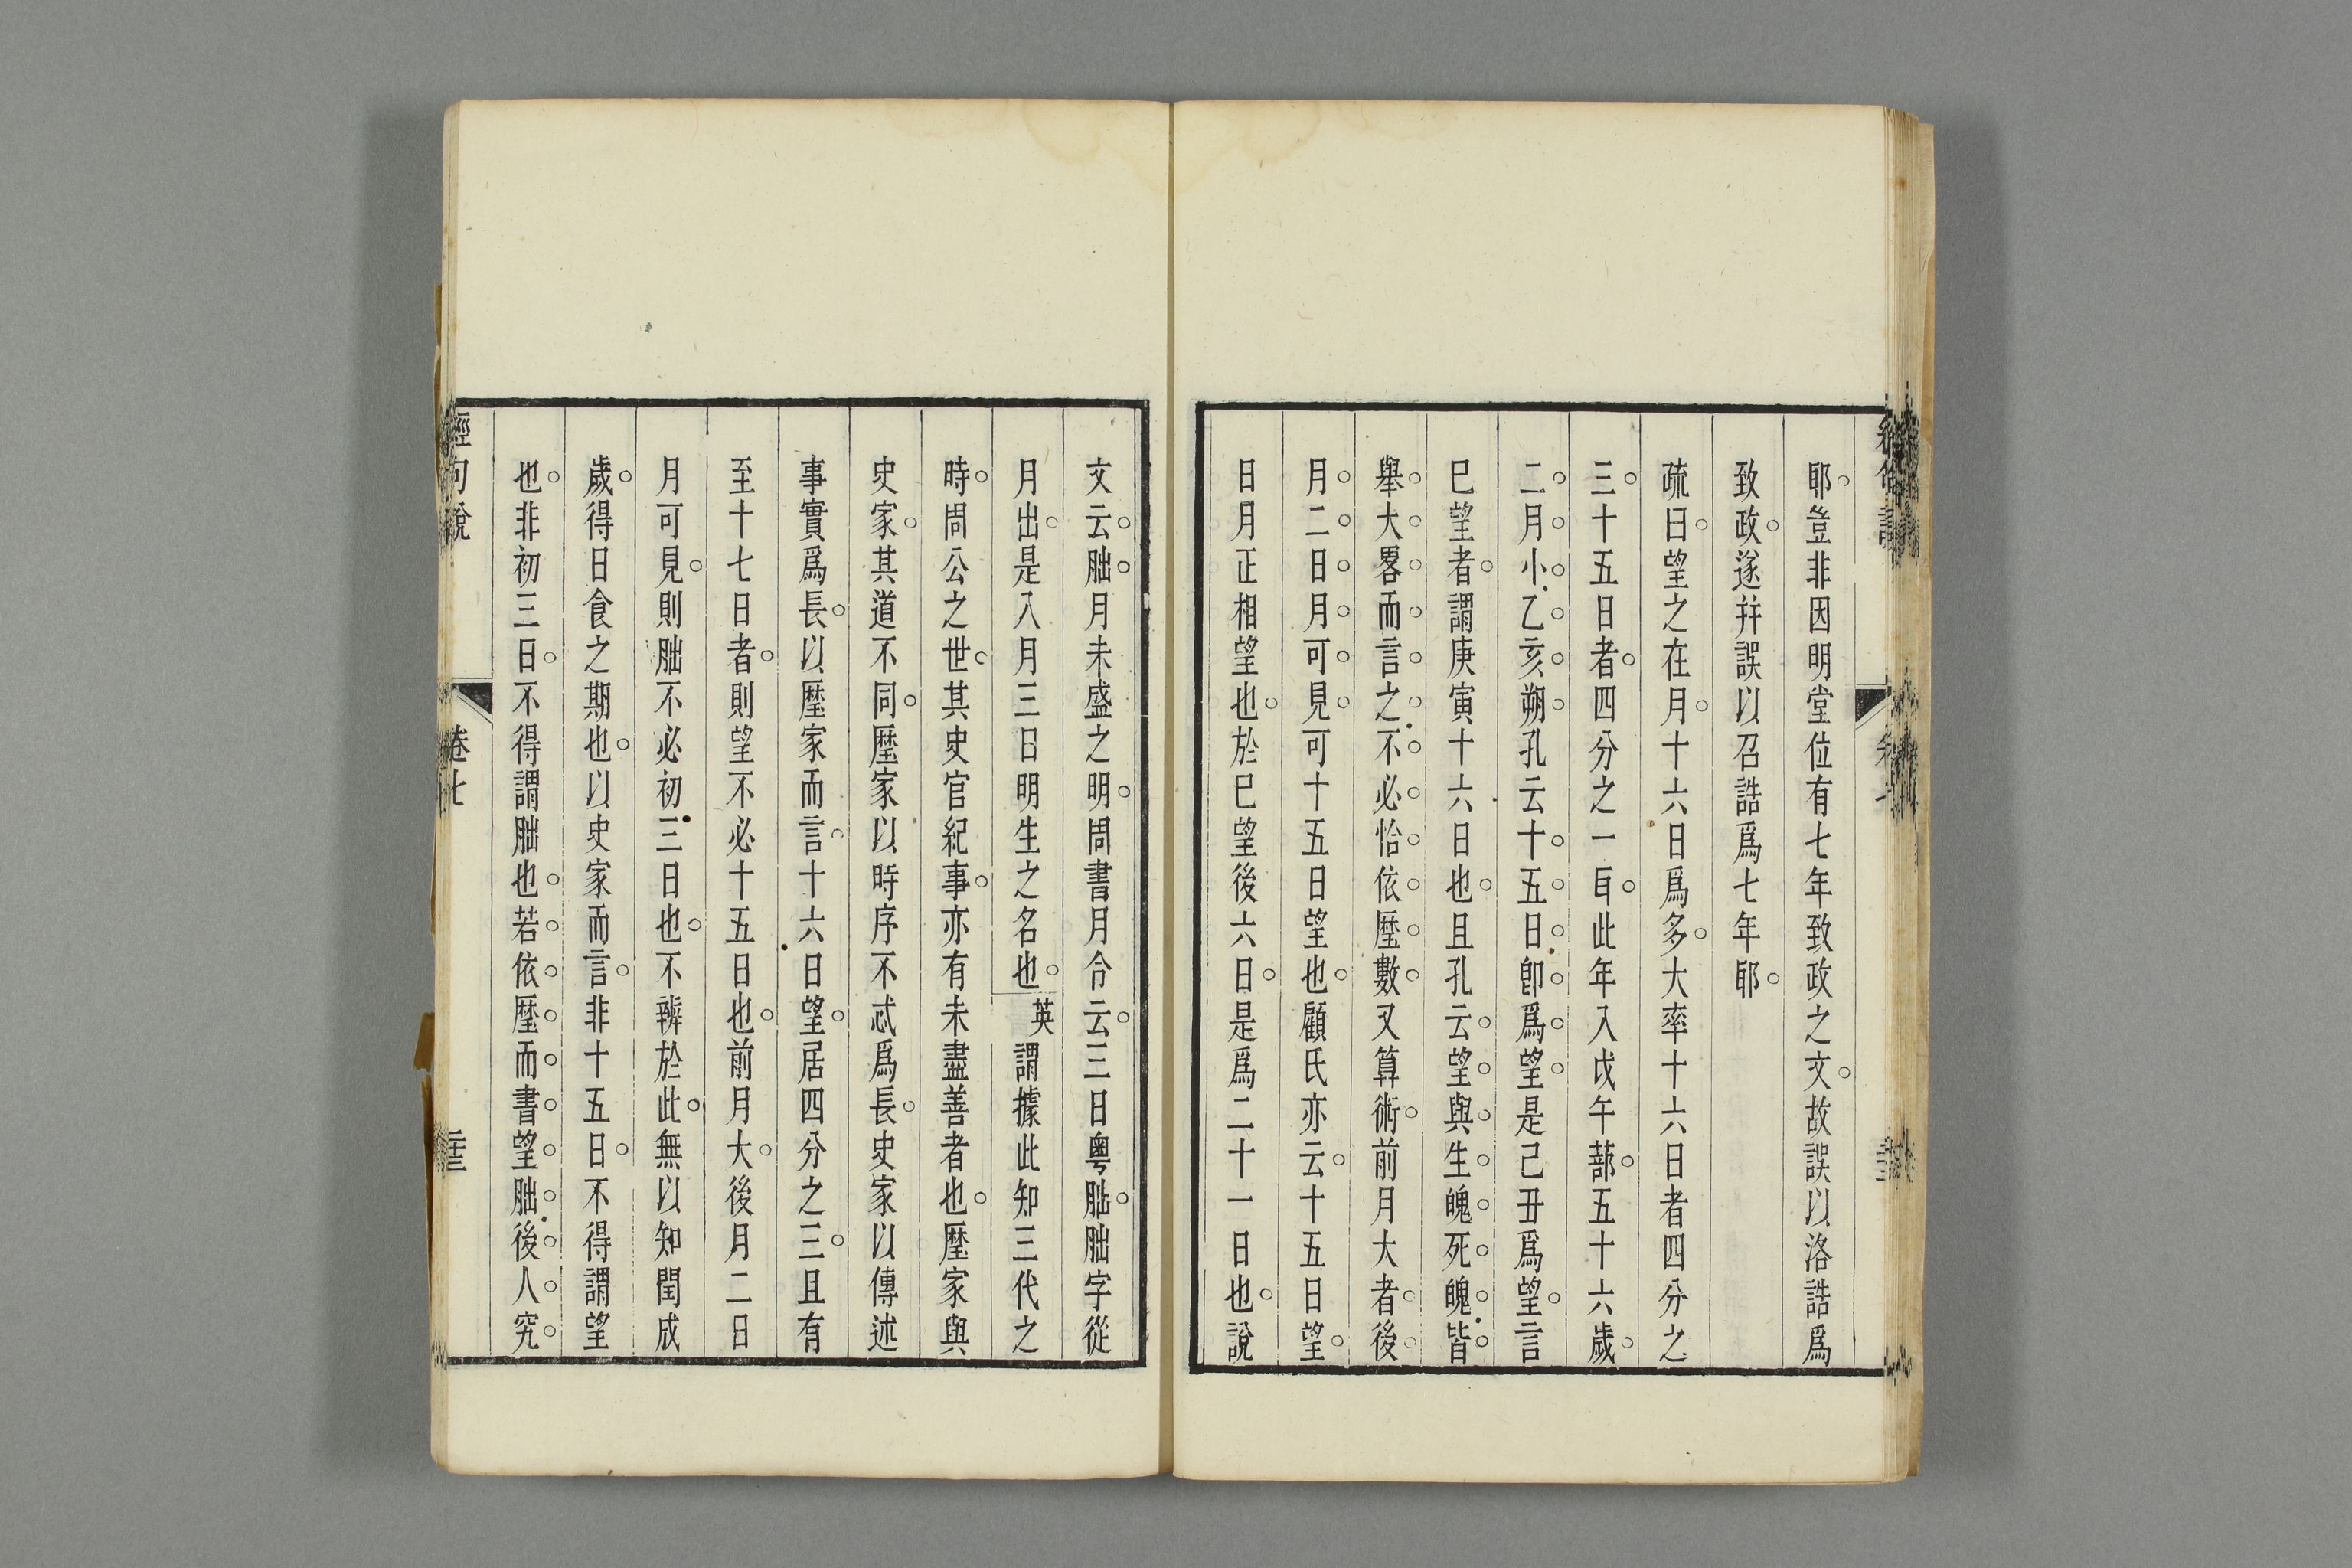 耶豈非因明堂位有七年致政之文故誤以洛誥爲
致政遂幷誤以召誥爲七年耶
疏曰望之在月十六日爲多大率十六日者四分之
三十五日者四分之一耳此年入戊午蔀五十六歲
二月小乙亥朔孔云十五日卽爲望是己丑爲望言
已望者謂庚寅十六日也且孔云望與生魄死魄皆
舉大畧而言之不必恰依歷數又算術前月大者後
月二日月可見可十五日望也顧氏亦云十五日望
日月正相望也於已望後六日是爲二十一日也說
文云朏月未盛之明周書月令云三日粵朏朏字從
月出是入月三日明生之名也英謂據此知三代之
時周公之世其史官紀事亦有未盡善者也歷家與
史家其道不同歷家以時序不忒爲長史家以傳述
事實爲長以歷家而言十六日望居四分之三且有
至十七日者則望不必十五日也前月大後月二日
月可見則朏不必初三日也不辨於此無以知閏成
歲得日食之期也以史家而言非十五日不得謂望
也非初三日不得謂朏也若依歷而書望朏後人究
經句說
卷七